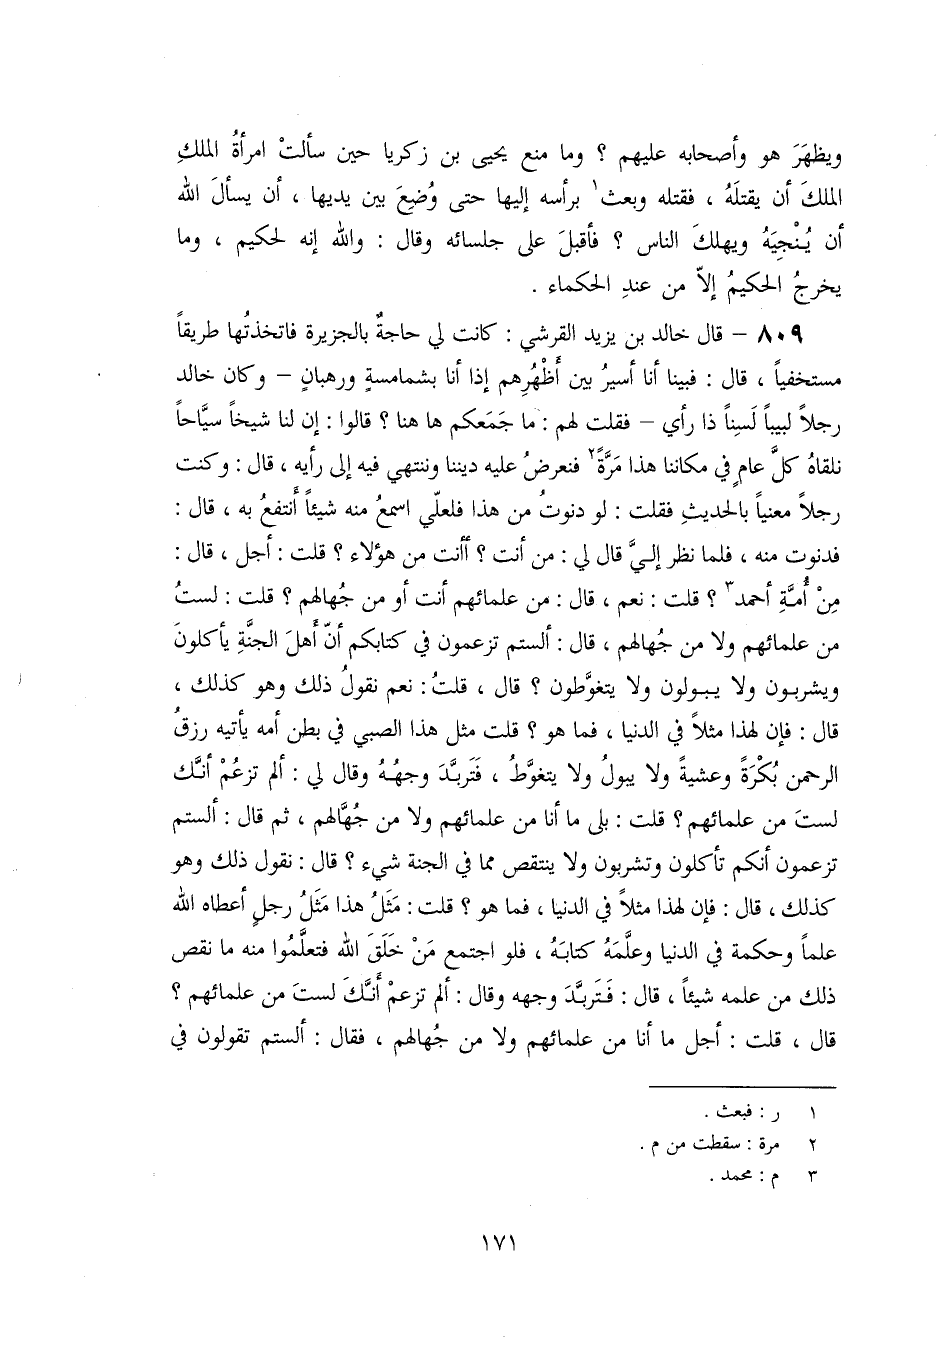 ويظهَرَ هو وأصحابه عليهم ؟ وما منع يحيى بن زكريا حين سألتْ امرأةُ الملكِ
الملكَ أن يقتلَهُ ، فقتله وبعث١ برأسه إليها حتى وُضِعَ بين يديها ، أن يسألَ الله
أن يُنْجِيَهُ ويهلكَ الناس ؟ فأقبلَ على جلسائه وقال : والله إنه لحكيم ، وما
يخرجُ الحكيمُ إلاّ من عندِ الحكماء .
٨٠٩ – قال خالد بن يزيد القرشي : كانت لي حاجةٌ بالجزيرة فاتخذتُها طريقاً
مستخفياً ، قال : فبينا أنا أسيرُ بين أَظْهُرِهم إذا أنا بشمامسةٍ ورهبانٍ – وكان خالد
رجلاً لبيباً لَسِناً ذا رأي – فقلت لهم : ما جَمَعكم ها هنا ؟ قالوا : إن لنا شيخاً سيَّاحاً
نلقاهُ كلَّ عامٍ في مكاننا هذا مَرَّةً٢ فنعرضُ عليه ديننا وننتهي فيه إلى رأيه ، قال : وكنت
رجلاً معنياً بالحديثِ فقلت : لو دنوتُ من هذا فلعلّي اسمعُ منه شيئاً أَنتفعُ به ، قال :
فدنوت منه ، فلما نظر إليَّ قال لي : من أنت ؟ أأنت من هؤلاء ؟ قلت : أجل ، قال :
مِنْ أُمَّةِ أحمد٣ ؟ قلت : نعم ، قال : من علمائهم أنت أو من جُهالهم ؟ قلت : لستُ
من علمائهم ولا من جُهالهم ، قال : ألستم تزعمون في كتابكم أنّ أَهلَ الجنَّةِ يأكلونَ
ويشربون ولا يبولون ولا يتغوَّطون ؟ قال ، قلتُ : نعم نقولُ ذلك وهو كذلك ،
قال : فإن لهذا مثلاً في الدنيا ، فما هو ؟ قلت مثل هذا الصبي في بطن أمه يأتيه رزقُ
الرحمن بُكْرَةً وعشيةً ولا يبولُ ولا يتغوَّطُ ، فَتَربَّدَ وجهُهُ وقال لي : ألم تزعُمْ أنَّك
لستَ من علمائهم ؟ قلت : بلى ما أنا من علمائهم ولا من جُهَّالهم ، ثم قال : ألستم
تزعمون أنكم تأكلون وتشربون ولا ينتقص مما في الجنة شيء ؟ قال : نقول ذلك وهو
كذلك ، قال : فإن لهذا مثلاً في الدنيا ، فما هو ؟ قلت : مَثَلُ هذا مَثَلُ رجلٍ أعطاه الله
علماً وحكمة في الدنيا وعلَّمَهُ كتابَهُ ، فلو اجتمع مَنْ خَلَقَ الله فتعلَّمُوا منه ما نقص
ذلك من علمه شيئاً ، قال : فَتَربَّدَ وجهه وقال : ألم تزعمْ أَنَّكَ لستَ من علمائهم ؟
قال ، قلت : أجل ما أنا من علمائهم ولا من جُهالهم ، فقال : ألستم تقولون في
١ ر : فبعث .
٢ مرة : سقطت من م .
٣ م : محمد .
١٧١